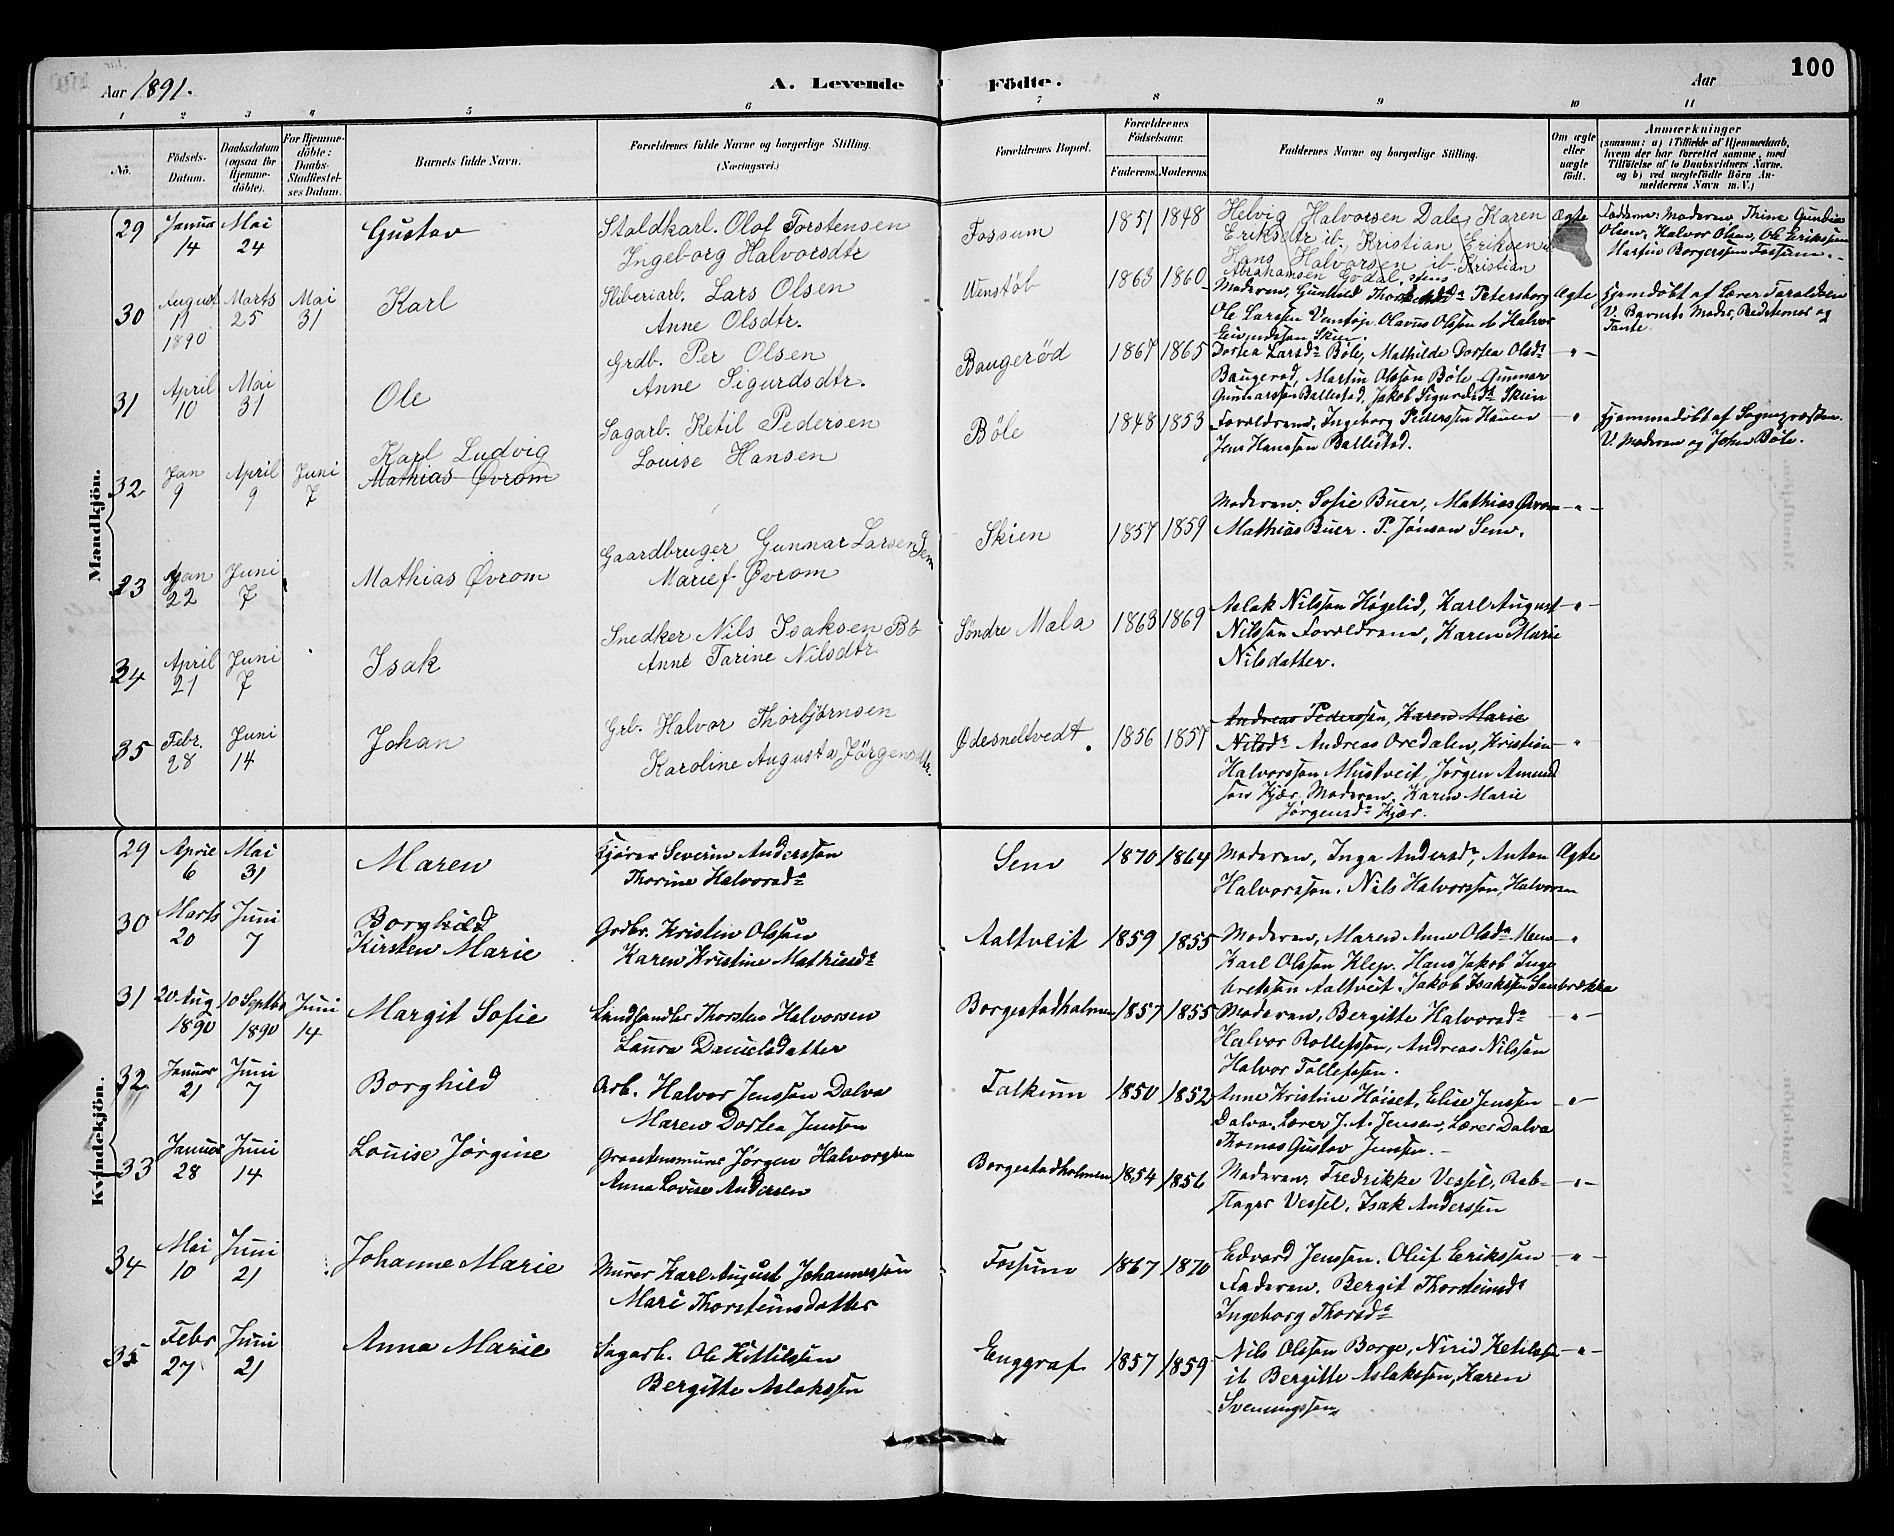 Aar 1891.
A. Levende Födte.
Aar
100
1 2 3 4 5 6 7 8 9 10 11
No.
Födsels-Datum.
Daabsdatum (ogsaa for Hjemme-döbte).
For Hjemme-döbte: Daabs-Stadfæstel-ses Datum.
Barnets fulde Navn.
Forældrenes fulde Navne og borgerlige Stilling.
(Næringsvei.)
Forældrenes Bopæl.
Forældrenes Födselsaar.
Faderens. Moderens.
Faddernes Navne og borgerlige Stilling.
Om ægte eller uægte födt.
Anmærkninger
(saasom: a) i Tilfælde af Hjemmedaab, hvem der har forrettet samme, med Tilföielse af to Daabsvidners Navne. og b) ved uægtefödte Börn An-melderens Navn m. V.)
Mandkjön.
29 Januar 14 Mai 24 Gustav
Staldkarl. Olof Torstensen
Ingeborg Halvorsdtr
Fossum 1851 1848
Helvig Halvorsen Dale, Karen
Eriksdtr ib., Kristian Eriksen
Hans Halvorsen ib. Kristian
Abrahamsen Godal,
Ægte
Faddere: Moderen, Thine Gunbia
Olsen, Halvor Olsen, Ole Erikssen
Martin Borgersen Fossum.
30 August 11 1890 Marts 25 Mai 31 Karl
Sliberiarb. Lars Olsen
Anne Olsdtr.
Venstöb 1863 1860
Moderen, Gunhild Petersborg
Ole Larssen Venstøp, Olavus Olssen ib Halvor
Eivindssen Skien.
Ægte
Hjemdøbt af Lærer Taraldsen
V. Barnets Moder, Bedstemor og
Tante.
31 April 10 Mai 31 Ole
Grdb. Per Olsen
Anne Sigurdsdtr.
Baugerød 1867 1865
Dortea Larsdr Bøle, Mathilde Dortea Olsdr
Baugerød, Martin Olssen Bøle Gunnar
Gunnarssen Ballestad, Jakob Sigurdsdr Skien
"
32 Jan 9 April 9 Juni 7 Karl Ludvig
Mathias Øvrom
Sagarb. Ketil Pedersen
Louise Hansen
Bøle 1848 1853
Forældrene, Ingeborg Pederssen Hauen
Jens Hanssen Ballestad.
"
Hjemmedöbt af Sognepræsten
V Moderen og John Bøle.
33 Jan 22 Juni 7 Mathias Øvrom
Gaardbruger Gunnar Larsen Sem
Marie f. Øvrom
Skien 1857 1859
Moderen. Sofie Buer, Mathias Øvrom
Mathias Buer. P. Jónson Sem.
"
34 April 21 Juni 7 Isak
Snedker Nils Isaksen Bö
Anne Tarine Nilsdtr.
Søndre Mæla 1863 1869
Aslak Nilssen Høgelid, Karl August
Nilssen Forældrene, Karen Marie
Nilsdatter.
"
35 Febr. 28 Juni 14 Johan
Grb. Halvor Thorbjørnsen
Karoline Augusta Jörgensdtr.
Ødesneltvedt 1856 1857
Andreas Pederssen, Karen Marie
Nilsdr Andreas Oredalen, Kristian
Halvorssen Mustveit, Jørgen Amund
sen Kjær, Moderen, Karen Marie
Jørgensdr Kjær.
"
Kvindekjön.
29 April 6 Mai 31 Maren
Kjører Severin Anderssen
Thorine Halvorsdr
Sem 1870 1864
Moderen, Inga Andersdr, Anton
Halvorssen. Nils Halvorssen, Halvorsen
Ægte
30 Marts 20 Juni 7 Borghild
Kirsten Marie
Grdbr. Kristen Olssen
Karen Kristine Mathiasdr
Aaltveit 1859 1855
Moderen, Maren Anne Olsdr Mæn
Karl Olssen Klep. Hans Jakob Inge
bretsen Aaltveit, Jakob Isakssen Sanbrækka
"
31 20 Aug 1890 10 Septbr 1890 Juni 14 Margit Sofie
Landhandler Thorsten Halvorsen
Laura Danielsdatter
Borgestadholmen 1857 1855
Moderen, Bergitte Halvorsdr
Halvor Rollefssen, Andreas Nilssen
Halvor Tollefssen.
"
32 Januar 21 Juni 7 Borghild
Arb. Halvor Jenssen Dalva
Maren Dortea Jensen
Falkum 1850 1852
Anne Kristine Höiset, Elise Jenssen
Dalva. Lærer J. A. Jensen, Lærer Dalva
Thomas Gustav Jenssen.
"
33 Januar 28 Juni 14 Louise Jørgine
Graastensmurer Jörgen Halvorssen
Anna Lovise Andersen
Borgestadholmen 1854 1856
Moderen, Fredrikke Vessel, Reb-
slager Vessel, Isak Anderssen
"
34 Mai 10 Juni 21 Johanne Marie
Murer Karl August Johannessen
Mari Thorsteinsdatter
Fossum 1867 1870
Edvard Jenssen. Oluf Erikssen
Faderen. Bergit Thorsteinsdr
Ingeborg Thorsdr
"
35 Febr 27 Juni 21 Anna Marie
Sagarb. Ole Kittilssen
Bergitte Aslakssen
Enggraf 1857 1859
Nils Olssen Borge, Nirid Ketilssen
ib Bergitte Aslakssen, Karen
Sveningssen
"